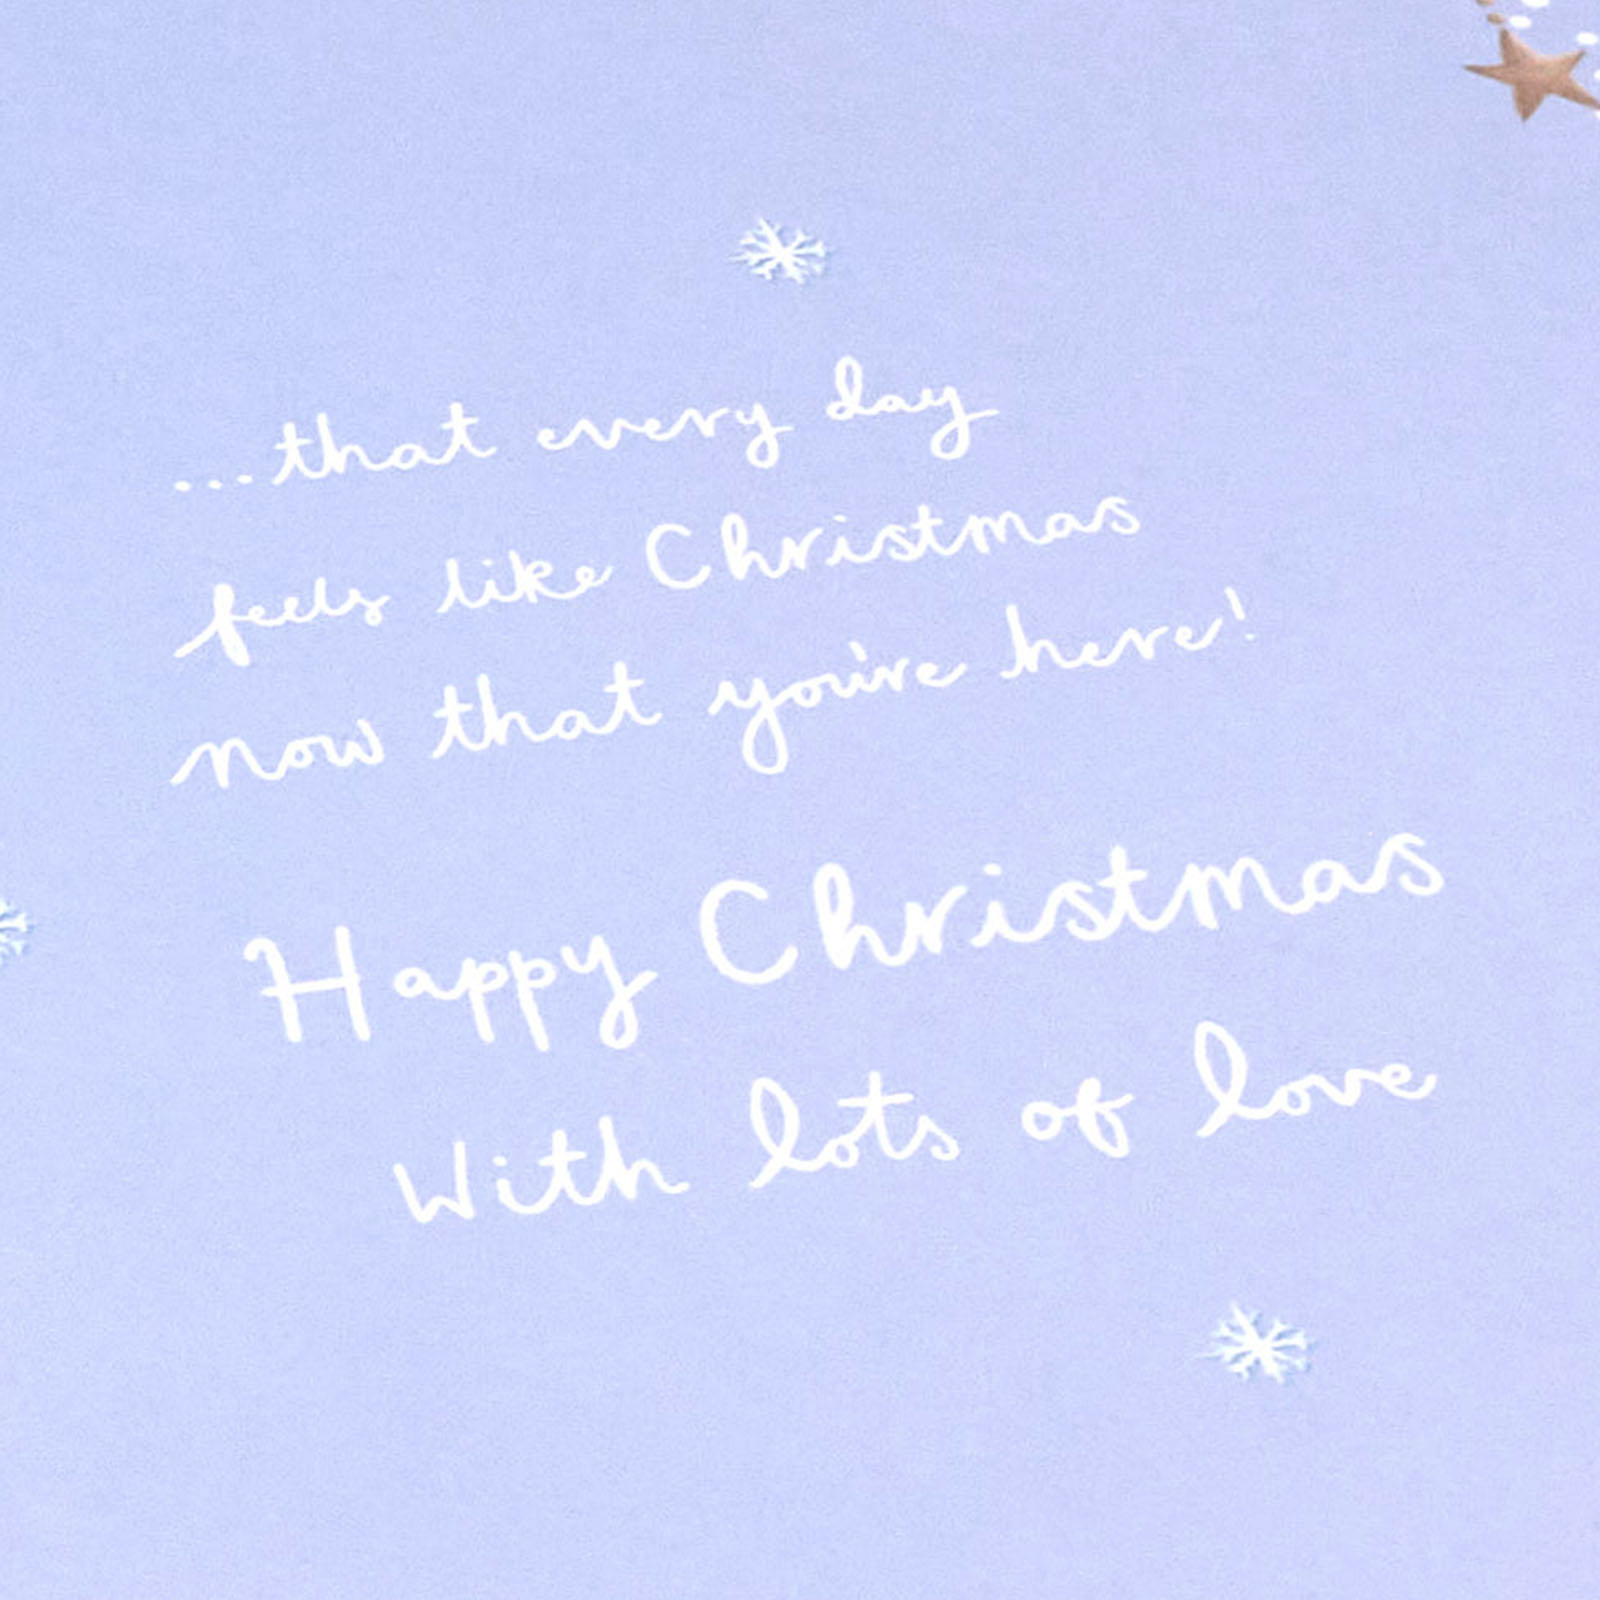 ...that every day
feels like Christmas
now that you're here!
Happy Christmas
With lots of love